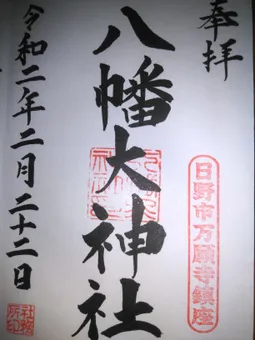 奉拝
日野市万願寺鎮座
八幡大神社
令和二年二月二十二日
社務所印